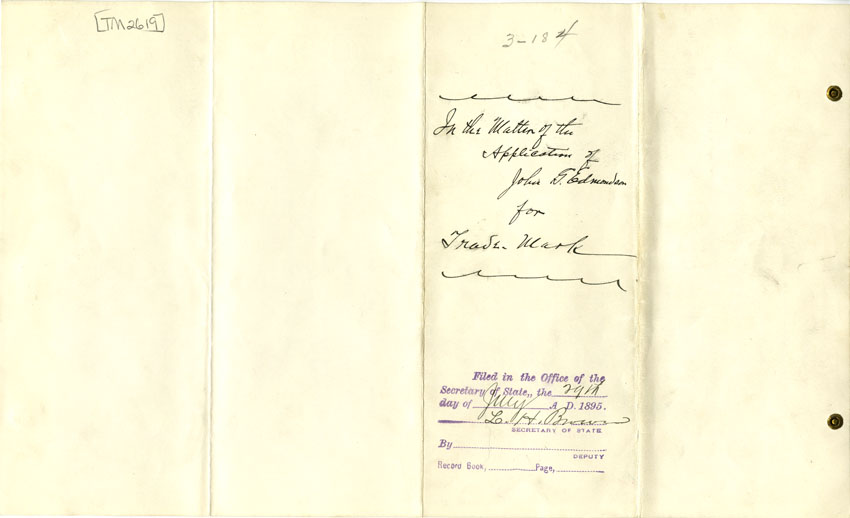 [TM2619]
3-184
In the Matter of the
Application of
John T. Edmondson
for
Trade-Mark
Filed in the Office of the
Secretary of State,, the 29th
day of July A. D. 1895.
L. H. Brown
SECRETARY OF STATE
By
DEPUTY
Record Book, Page,